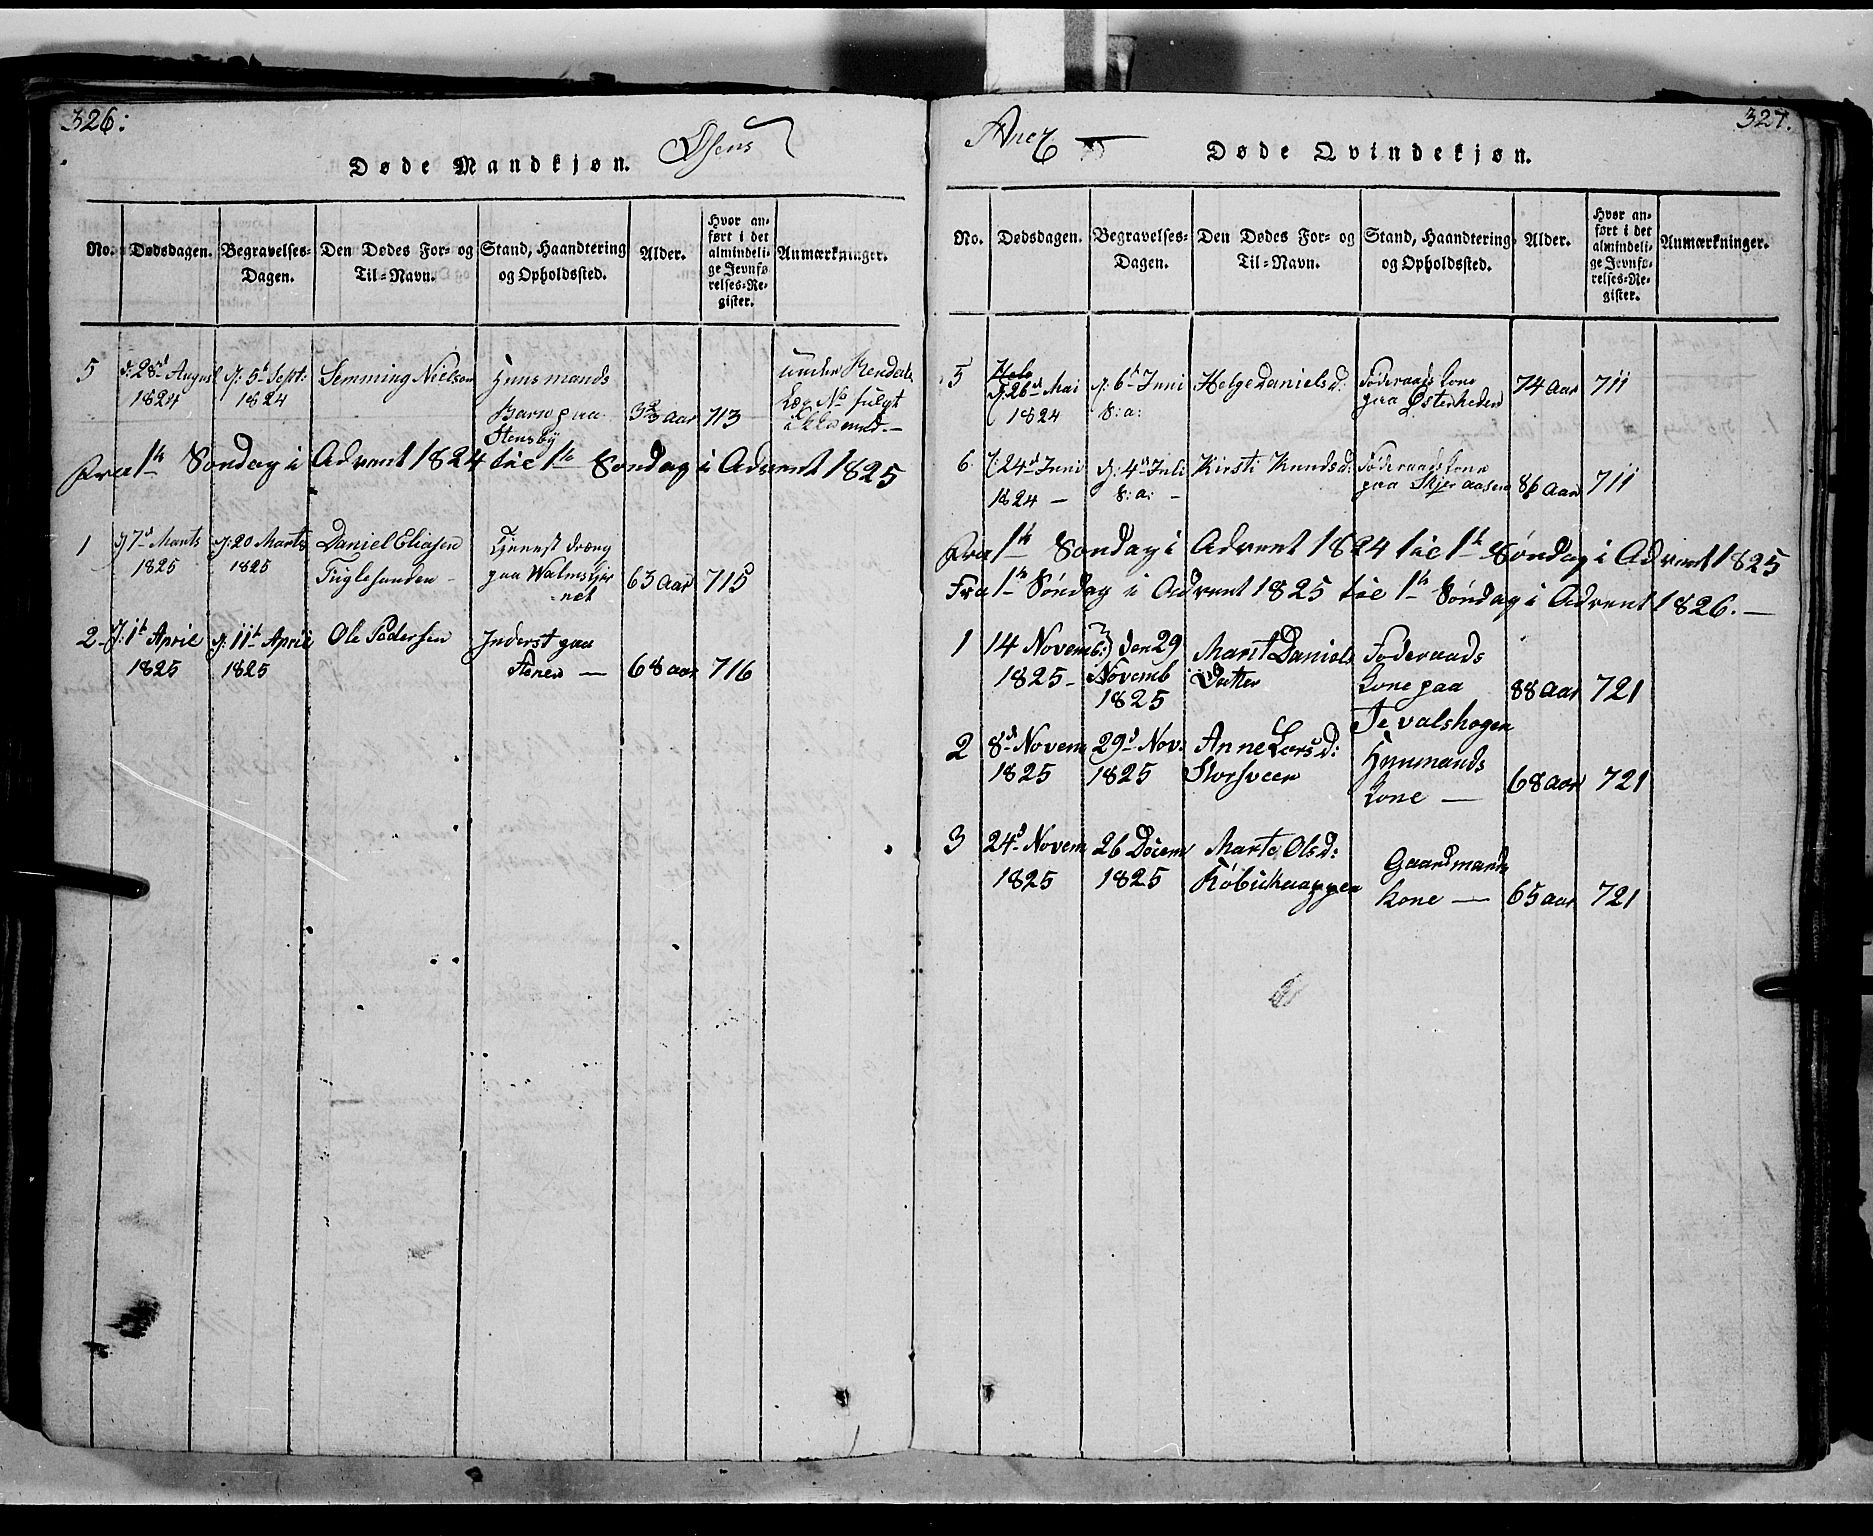 326:
Døde Mandkjøn.
Osens
No.
Dødsdagen.
Begravelses-
Dagen.
Den Dødes For- og
Til-Navn.
Stand, Haandtering
og Opholdssted.
Alder.
Hvor an-
ført i det
almindeli-
ge Jevnfø-
relses-Re-
gister.
Anmærkninger.
5
d: 28d August
1824
d: 5t Sept:
1824
Semming Nielsen
Huusmands
Barn paa
Stensby
3 2/3 aar
713
under Rendals
No fulgt
Fra 1te Søndag i Advent 1824 til 1te Søndag i Advent 1825
1
d 7d Marts
1825
d: 20 Marts
1825
Daniel Eliasen
Fuglesanden -
Tjenest dræng
paa Walmstjer
-net
63 Aar
715
2
d: 1t April
1825
d: 11t April
1825
Ole Pedersen
Inderst paa
Stenen —
68 aar
716
Anex
327.
Døde Qvindekjøn.
No.
Dødsdagen.
Begravelses-
Dagen.
Den Dødes For- og
Til-Navn.
Stand, Haandtering
og Opholdssted.
Alder.
Hvor an-
ført i det
almindeli-
ge Jevnfø-
relses-Re-
gister.
Anmærkninger.
5
d: 26d Mai
1824
d: 6t Juni
s: a:
Helge Danielsd:
Føderaads Kone
paa Østerheden
74 Aar
711
6
d: 24d Juni
1824 —
d: 4d Juli
s: a: -
Kirsti Knudsd:
Føderaads Kone
paa Skjeraasen
86 Aar
711
Fra 1te Søndag i Advent 1824 til 1te Søndag i Advent 1825
Fra 1te Søndag i Advent 1825 til 1te Søndag i Advent 1826. —
1
14 Novemb:
1825 -
den 29
Novemb
1825
Marit Daniels
Datter
Føderaads
Kone paa
Tevalshogen
88 Aar
721
2
8d Novem
1825
29d Nov:
1825
Anne Larsd:
Storsveen
Huusmands
Kone —
68 aar
721
3
24d Novem
1825
26 Decem
1825
Marte Olsd:
Gaardmands
Kone —
65 aar
721